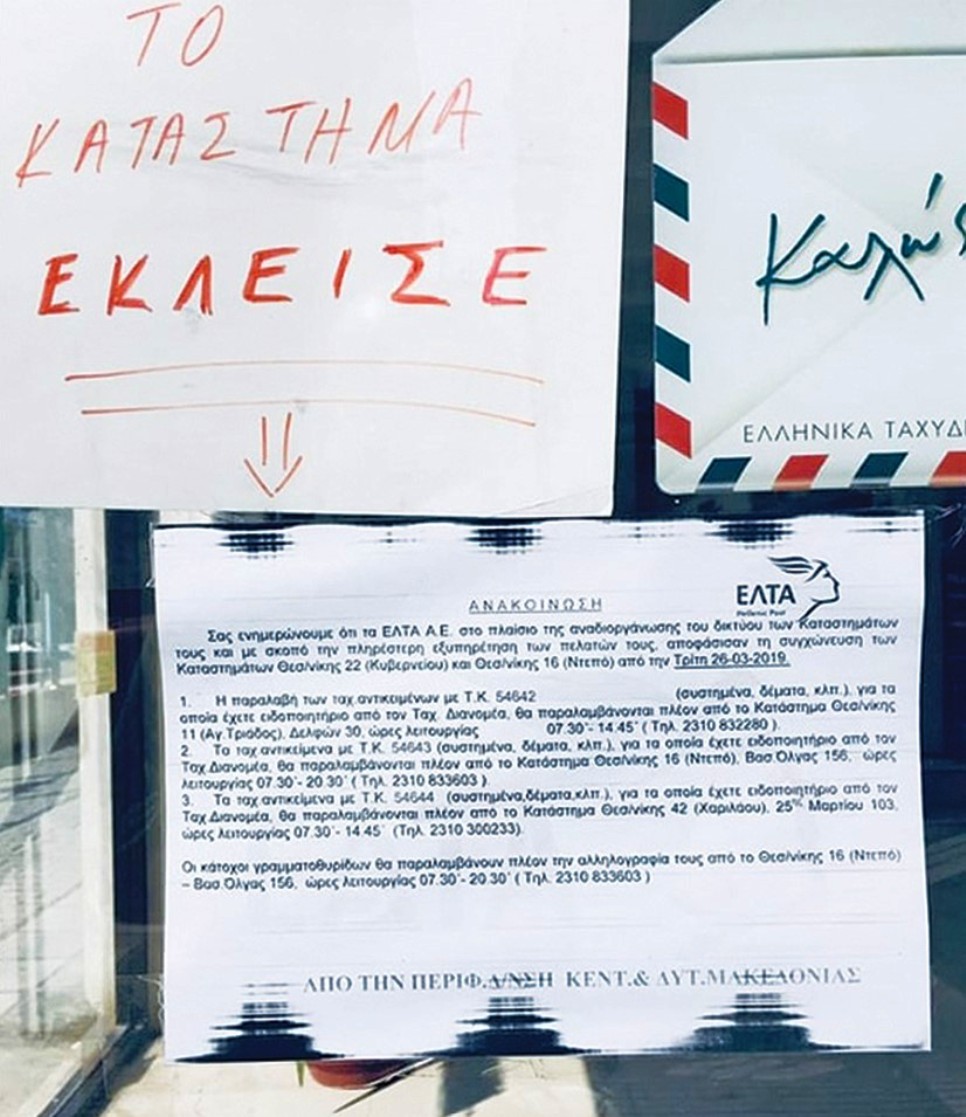 ΤΟ
ΚΑΤΑΣΤΗΜΑ
ΕΚΛΕΙΣΕ
Καλώς
ΕΛΛΗΝΙΚΑ ΤΑΧΥΔ
ΕΛΤΑ
Hellenic Post
ΑΝΑΚΟΙΝΩΣΗ
Σας ενημερώνουμε ότι τα ΕΛΤΑ Α.Ε. στο πλαίσιο της αναδιοργάνωσης του δικτύου των Καταστημάτων
τους και με σκοπό την πληρέστερη εξυπηρέτηση των πελατών τους, αποφάσισαν τη συγχώνευση των
Καταστημάτων Θεσ/νίκης 22 (Κυβερνείου) και Θεσ/νίκης 16 (Ντεπό) από την Τρίτη 26-03-2019.
1. Η παραλαβή των ταχ.αντικειμένων με Τ.Κ. 54642 (συστημένα, δέματα, κλπ.), για τα
οποία έχετε ειδοποιητήριο από τον Ταχ. Διανομέα, θα παραλαμβάνονται πλέον από το Κατάστημα Θεσ/νίκης
11 (Αγ.Τριάδος), Δελφών 30, ώρες λειτουργίας 07.30΄- 14.45΄ ( Τηλ. 2310 832280 ).
2. Τα ταχ.αντικείμενα με Τ.Κ. 54643 (συστημένα, δέματα, κλπ.), για τα οποία έχετε ειδοποιητήριο από τον
Ταχ.Διανομέα, θα παραλαμβάνονται πλέον από το Κατάστημα Θεσ/νίκης 16 (Ντεπό), Βασ.Όλγας 156, ώρες
λειτουργίας 07.30΄- 20.30΄ ( Τηλ. 2310 833603 ).
3. Τα ταχ.αντικείμενα με Τ.Κ. 54644 (συστημένα,δέματα,κλπ.), για τα οποία έχετε ειδοποιητήριο από τον
Ταχ.Διανομέα, θα παραλαμβάνονται πλέον από το Κατάστημα Θεσ/νίκης 42 (Χαριλάου), 25ης Μαρτίου 103,
ώρες λειτουργίας 07.30΄- 14.45΄ (Τηλ. 2310 300233).
Οι κάτοχοι γραμματοθυρίδων θα παραλαμβάνουν πλέον την αλληλογραφία τους από το Θεσ/νίκης 16 (Ντεπό)
– Βασ.Όλγας 156, ώρες λειτουργίας 07.30΄- 20.30΄ ( Τηλ. 2310 833603 )
ΑΠΟ ΤΗΝ ΠΕΡΙΦ.Δ/ΝΣΗ ΚΕΝΤ.& ΔΥΤ.ΜΑΚΕΔΟΝΙΑΣ